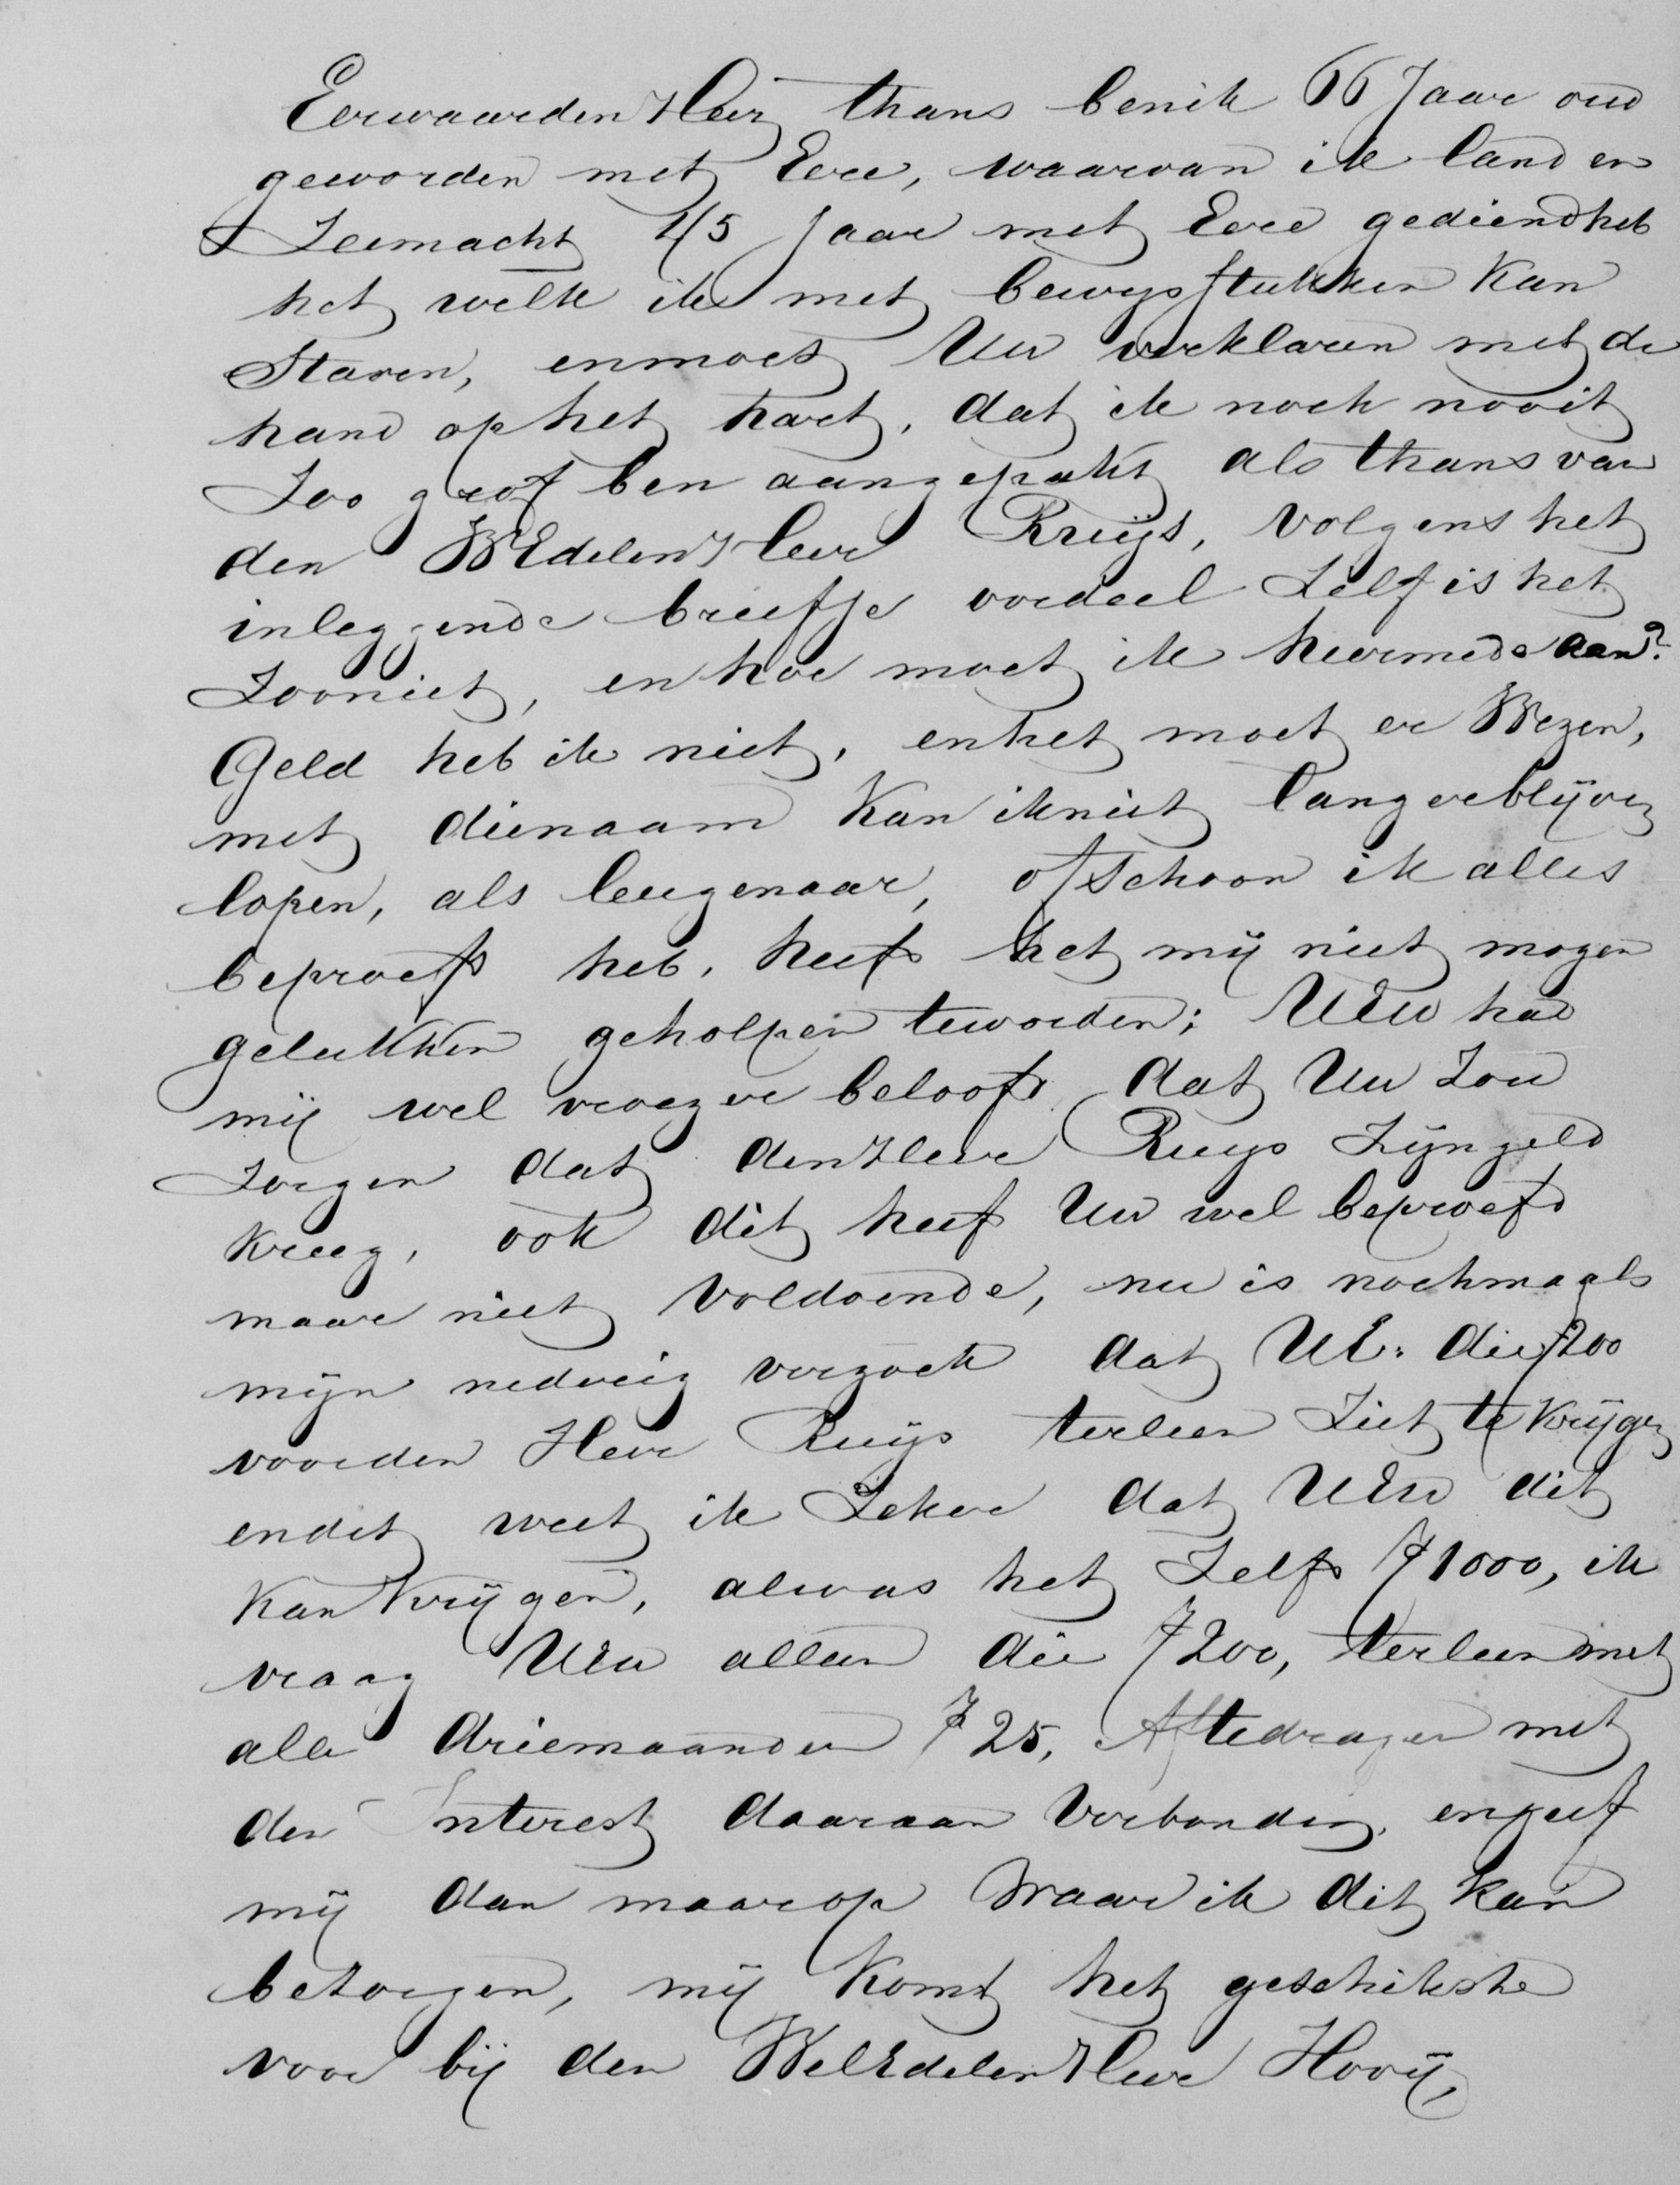 Eerwaarden Heer, thans benik 66 Jaar oud
geworden met Eere, waarvan ik land en
Zeemacht 45 Jaar met Eere gediend heb
het welk ik met bewysstukken Kan
Staven, enmoet Uw verklaren met de
hand op het hart, dat ik noch nooit
Zoo grof ben aangepakt als thans van
den WEdelen Heer Rruijs, volgens het
inleggende breefje voedeel Zelf is het
Zooniet, en hoe moet ik hiermede aan?
Geld heb ik niet, enhet moet er Wezen,
met dienaam Kan ikniet langerblijven
lopen, als leugenaar, ofschoon ik alles
beproeft heb, heeft het mij niet mogen
gelukken geholpen teworden; UEw had
mij wel vroeger beloofd dat Uw Zou
Zorgen dat denHeer Ruys Zijngeld
Kreeg, ook dit heef Uw wel beproefd
maar niet Voldoende, nu is nochmaals
mijn nedrig verzoek dat UE. die ƒ200
voorden Heer Ruijs terleen Ziet te Krijgen
endit weet ik Zeker dat UEw dit
Kan Krijgen, alwas het Zelfs ƒ1000, ik
vraag UEw alleen die ƒ200, terleen met
alle driemaanden ƒ25, Aftedragen met
den Interest daaraan Verbonden, engeef
mij dan maarop Waar ik dit kan
bezorgen, mij Komt het geschikste
voor bij den WelEdelen Heer Hooij,